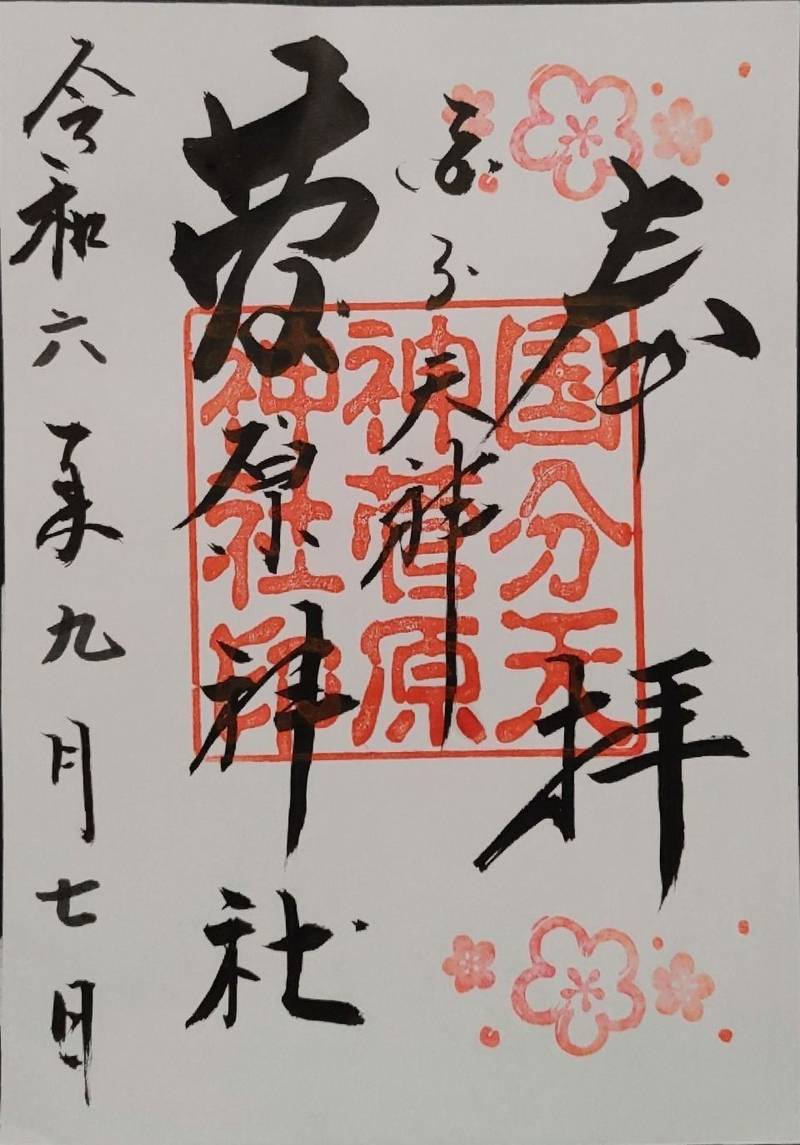 奉拝
国分天神
菅原神社
令和六年九月七日
国分天
神菅原
神社印